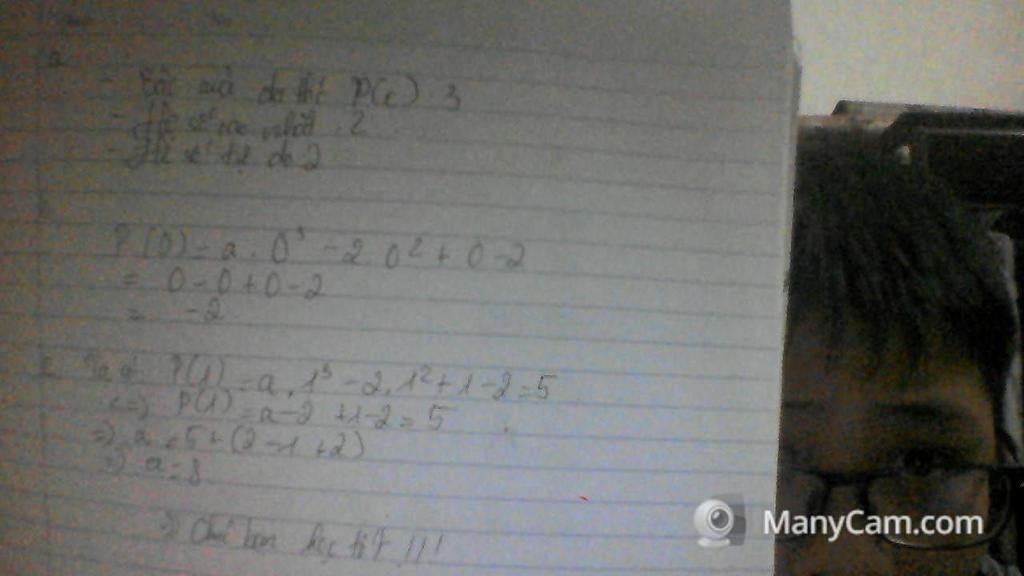 a
- Bậc của đa thức P(x) 3
- Hệ số cao nhất . 2
- Hệ số tự do 2
P(0) = a . 0³ - 2 . 0² + 0 - 2
= 0 - 0 + 0 - 2
= -2
c Ta có P(1) = a . 1³ - 2 . 1² + 1 - 2 = 5
<=> P(1) = a - 2 + 1 - 2 = 5
=> a = 5 + (2 - 1 + 2)
=> a = 8
=> Chúc bạn học tốt !!!
ManyCam.com